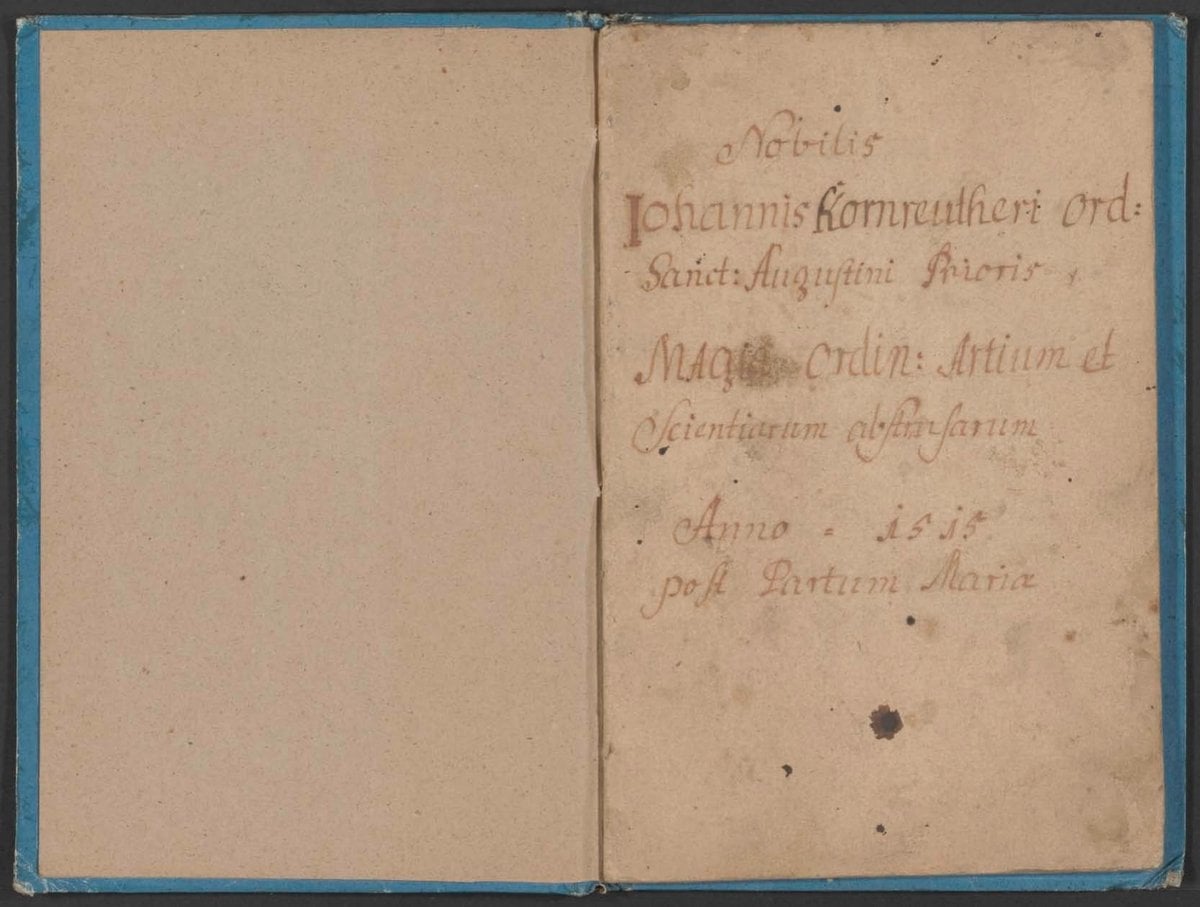 Nobilis
Iohannis Kornreutheri Ord:
Sanct: Augustini Prioris
Magia Ordin: Artium et
Scientiarum abstrusarum
Anno - 1515
post Partum Mariæ